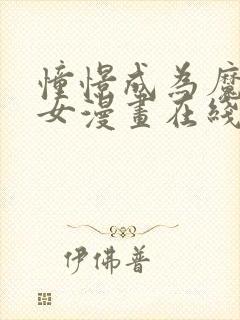 憧憬成为魔
女漫画在线
伊佛普